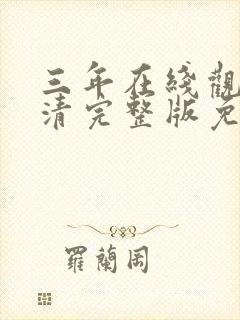 三年在綫觀
清完整版免
羅蘭岡